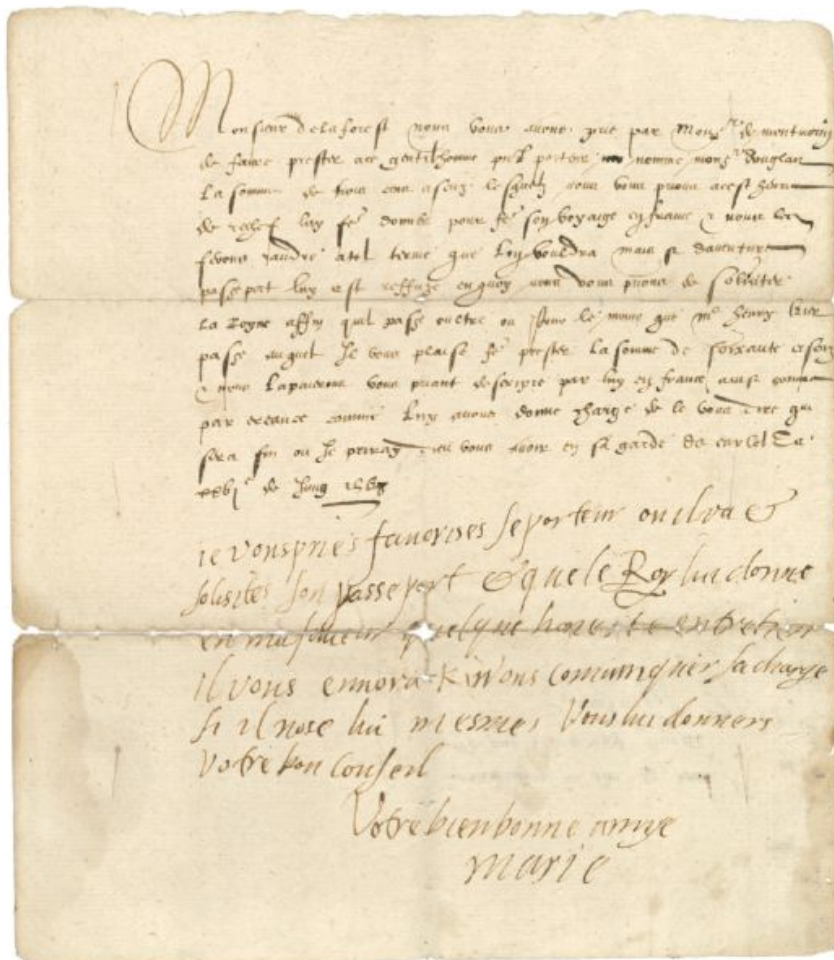 Monsieur de la forest nous vous avons prie par Mons.r de
de faire prester a ce gentilhomme present porteur nomme mons.r douglas
la somme de trois cens escuz lesquelz nous vous prions a cest heure
de rechef luy fe.e donner pour fe.e son voyaige en france & nous les
ferons randre a tel terme que luy vouldra mais si daventure
passeport luy est reffuze en quoy nous vous prions de soliciter
La Royne affin quil passe oultre ou pour le moins que m.e henry
passe auquel Je vous plaise fe.e prester la somme de soixante escuz
& nous vous priant descripre par luy en france ainsi comme
par creance comme luy avons donne charge de le vous dire qui
sera fin ou Je priray dieu vous avoir en sa garde de
xxvj.e de Juing 1568
ie vous pries favorises se porteur ou il va &
solisites son passeport & que le Roy lui donne
en ma faveur quelque honeste entretien
il vous comuniquer sa charge
si il nose lui mesmes Vous lui donners
Votre bon conseil
Votre bien bonne amye
Marie